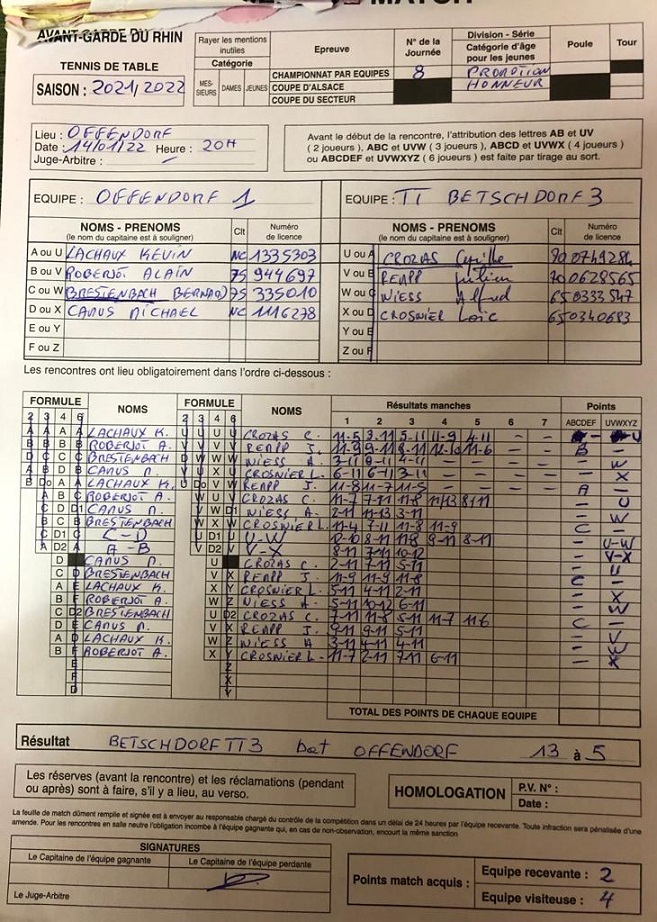 MATCH
AVANT-GARDE DU RHIN
TENNIS DE TABLE
SAISON : 2021/2022
Rayer les mentions inutiles
Catégorie
MES-SIEURS DAMES JEUNES
Epreuve
CHAMPIONNAT PAR EQUIPES
COUPE D'ALSACE
COUPE DU SECTEUR
N° de la Journée
8
Division - Série
Catégorie d'âge pour les jeunes
PROMOTION
HONNEUR
Poule
Tour
Lieu : OFFENDORF
Date : 14/01/22 Heure : 20H
Juge-Arbitre :
Avant le début de la rencontre, l'attribution des lettres AB et UV
( 2 joueurs), ABC et UVW ( 3 joueurs), ABCD et UVWX ( 4 joueurs)
ou ABCDEF et UVWXYZ ( 6 joueurs) est faite par tirage au sort.
EQUIPE : OFFENDORF 1
EQUIPE : TT BETSCHDORF 3
NOMS - PRENOMS
(le nom du capitaine est à souligner)
Clt
Numéro de licence
NOMS - PRENOMS
(le nom du capitaine est à souligner)
Clt
Numéro de licence
A ou U LACHAUX KEVIN NC 1335303
U ou A CROZAS
B ou V ROBERJOT ALAIN 75 944697
V ou B 700628565
C ou W BRESTENBACH BERNAD 75 335010
W ou C WIESS Alfred 650333547
D ou X CANUS MICHAEL NC 1116278
X ou D CROSNIER Loïc 650340683
E ou Y
Y ou E
F ou Z
Z ou F
Les rencontres ont lieu obligatoirement dans l'ordre ci-dessous :
FORMULE NOMS FORMULE NOMS Résultats manches Points
2 3 4 6 2 3 4 6 1 2 3 4 5 6 7 ABCDEF UVWXYZ
LACHAUX K. CROZAS C. 11-5 3-11 5-11 11-9 4-11 - -
ROBERJOT A. REAPP J. 11-9 9-11 8-11 12-10 11-6 - - B -
BRESTENBACH WIESS A. - W
CANUS M. CROSNIER L. 6-11 6-11 3-11 - X
LACHAUX K. REAPP J. 11-8 11-7 11-5 A -
ROBERJOT A. CROZAS C. 11-7 7-11 11-8 11/13 8/11 - U
CANUS M. WIESS A. 2-11 11-13 3-11 - W
BRESTENBACH CROSNIER L. 11-4 7-11 11-8 11-9 C -
C-D U-W 12-10 8-11 11-9 9-11 8-11 - U-W
A-B V-X 8-11 7-11 10-12 - V-X
CANUS M. CROZAS C. 2-11 7-11 5-11 - U
BRESTENBACH REAPP J. 11-9 11-9 11-8 C -
LACHAUX K. CROSNIER L. 5-11 4-11 2-11 - X
ROBERJOT A. WIESS A. 5-11 10-12 6-11 - W
BRESTENBACH CROZAS C. 7-11 11-8 5-11 11-7 11-6 C -
CANUS M. REAPP J. 9-11 9-11 5-11 - V
LACHAUX K. WIESS A. 3-11 4-11 2-11 - W
ROBERJOT A. CROSNIER L. 11-7 2-11 7-11 6-11 - X
TOTAL DES POINTS DE CHAQUE EQUIPE
Résultat BETSCHDORF TT 3 bat OFFENDORF 13 à 5
Les réserves (avant la rencontre) et les réclamations (pendant
ou après) sont à faire, s'il y a lieu, au verso.
HOMOLOGATION
P.V. N° :
Date :
La feuille de match dûment remplie et signée est à envoyer au responsable chargé du contrôle de la compétition dans un délai de 24 heures par l'équipe recevante. Toute infraction sera pénalisée d'une
amende. Pour les rencontres en salle neutre l'obligation incombe à l'équipe gagnante qui, en cas de non-observation, encourt la même sanction
SIGNATURES
Le Capitaine de l'équipe gagnante
Le Capitaine de l'équipe perdante
Le Juge-Arbitre
Points match acquis :
Equipe recevante : 2
Equipe visiteuse : 4